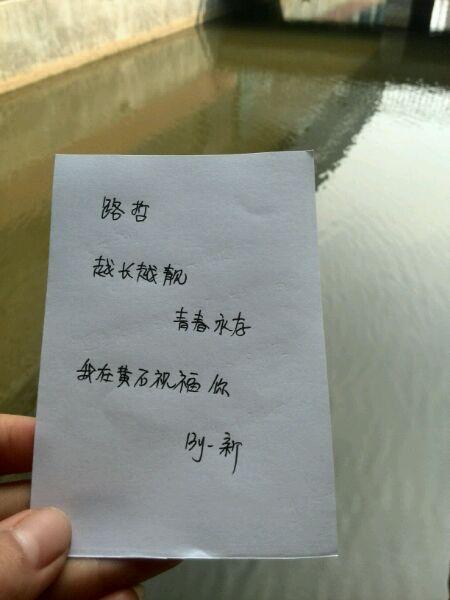 路哲
越长越靓
青春永存
我在黄石祝福你
By-新